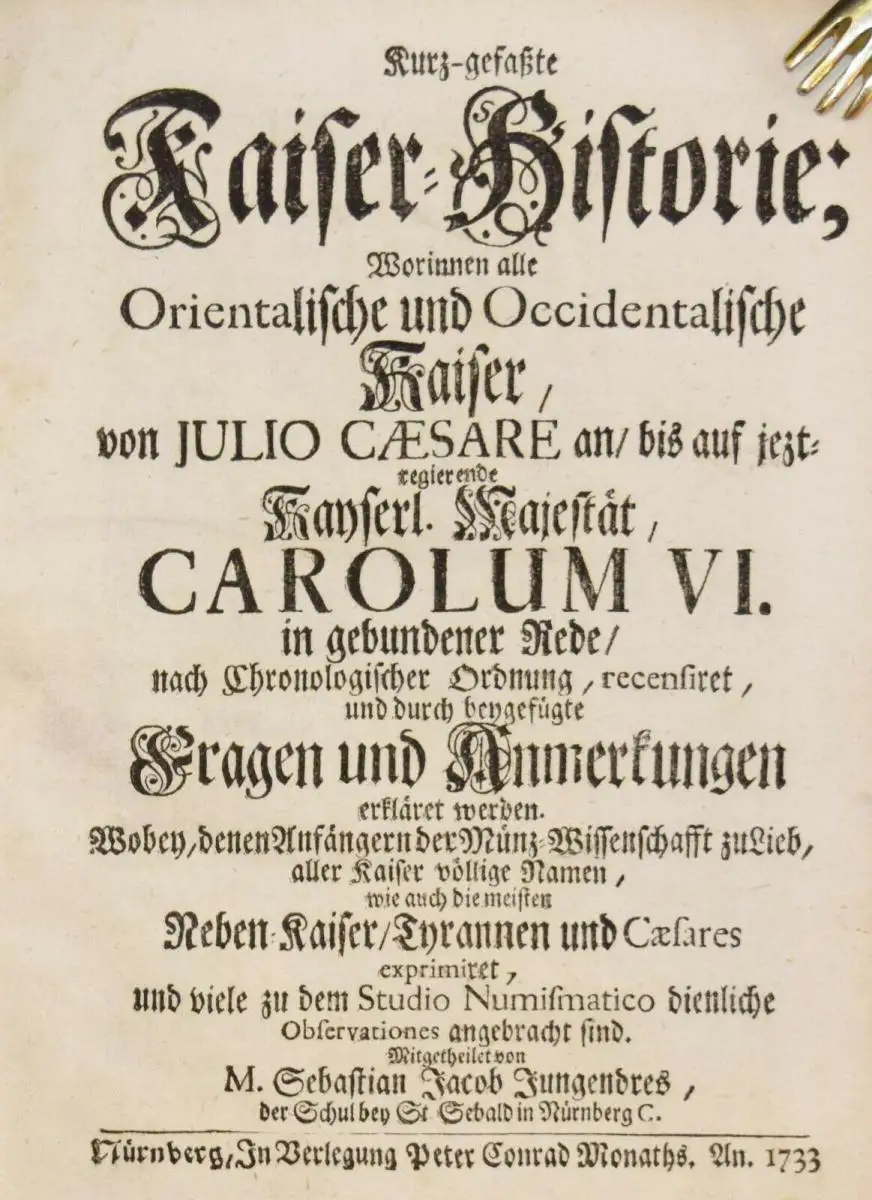 Kurz-gefaßte
Kaiser-Hiſtorie;
Worinnen alle
Orientaliſche und Occidentaliſche
Kaiser,
von JULIO CÆSARE an/ bis auf jezt-
regierende
Kayſerl. Majeſtät,
CAROLUM VI.
in gebundener Rede/
nach Chronologiſcher Ordnung, recenſiret,
und durch beygefügte
Fragen und Anmerkungen
erkläret werden.
Wobey/denen Anfängern der Münz-Wiſſenſchafft zu Lieb,
aller Kaiſer völlige Namen,
wie auch die meiſten
Neben-Kaiſer/Tyrannen und Cæſares
exprimiret,
und viele zu dem Studio Numiſmatico dienliche
Obſervationes angebracht ſind.
Mitgetheilet von
M. Sebaſtian Jacob Jungendres,
der Schul bey St Sebald in Nürnberg C.
Nürnberg/In Verlegung Peter Conrad Monaths. An. 1733